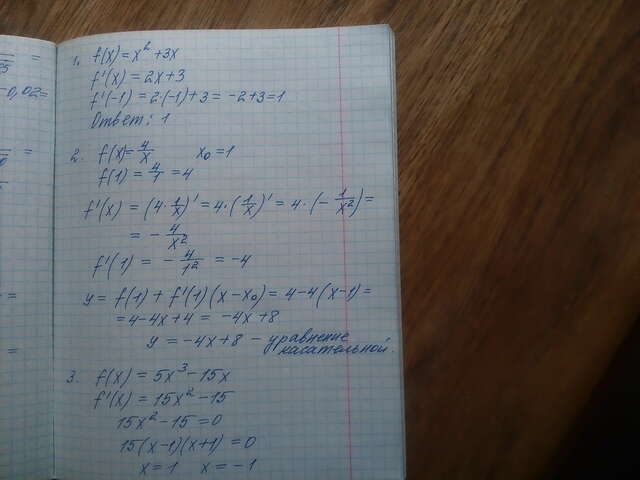 =
25
-0,02=
=
=
=
1. f(x)=x²+3x
f'(x)=2x+3
f'(-1)=2·(-1)+3=-2+3=1
Ответ: 1
2. f(x)=4/x x₀=1
f(1)=4/1=4
f'(x)=(4·1/x)'=4·(1/x)'=4·(-1/x²)=
=-4/x²
f'(1)=-4/1²=-4
y=f(1)+f'(1)(x-x₀)=4-4(x-1)=
=4-4x+4=-4x+8
y=-4x+8-уравнение
касательной.
3. f(x)=5x³-15x
f'(x)=15x²-15
15x²-15=0
15(x-1)(x+1)=0
x=1 x=-1